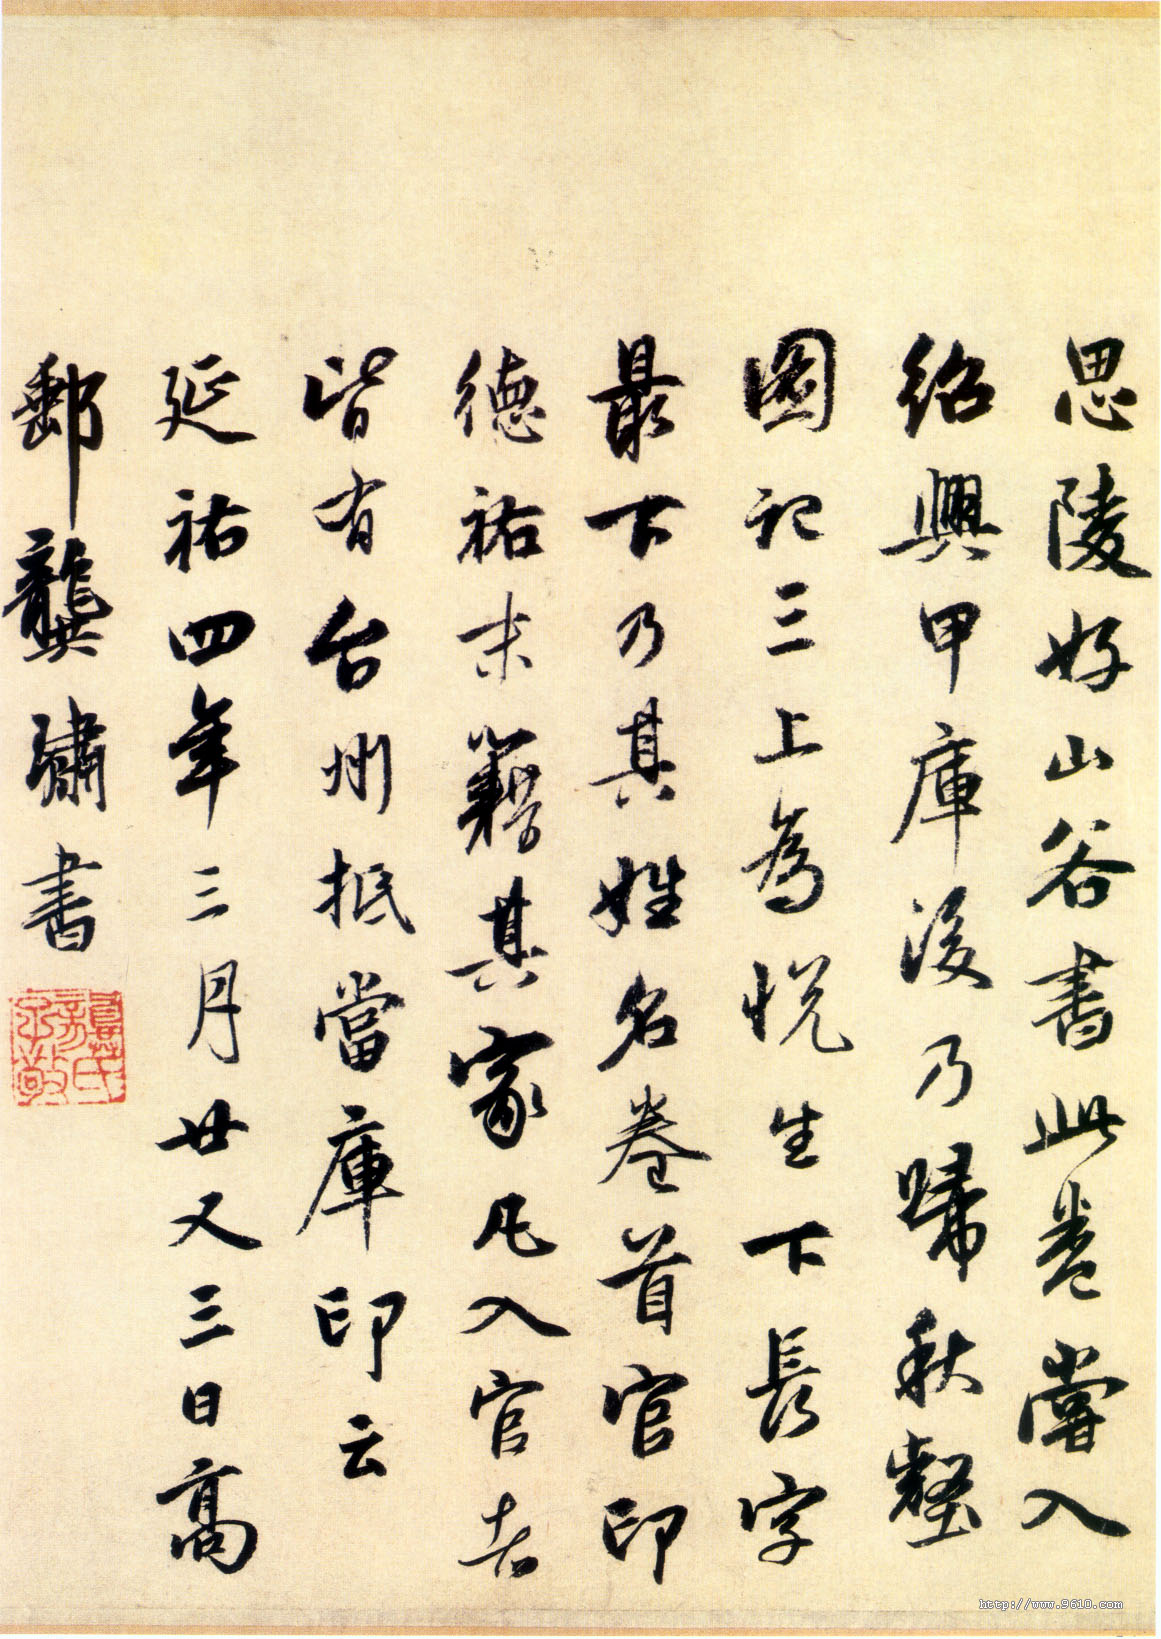 思陵好山谷書此卷嘗入
紹興甲庫後乃歸秋壑
圖記三上為悅生下長字
最下乃其姓名卷首官印
德祐末籍其家凡入官者
皆有台州抵當庫印云
延祐四年三月廿又三日高
郵龔璛書
龔氏子敬
http://www.9610.com